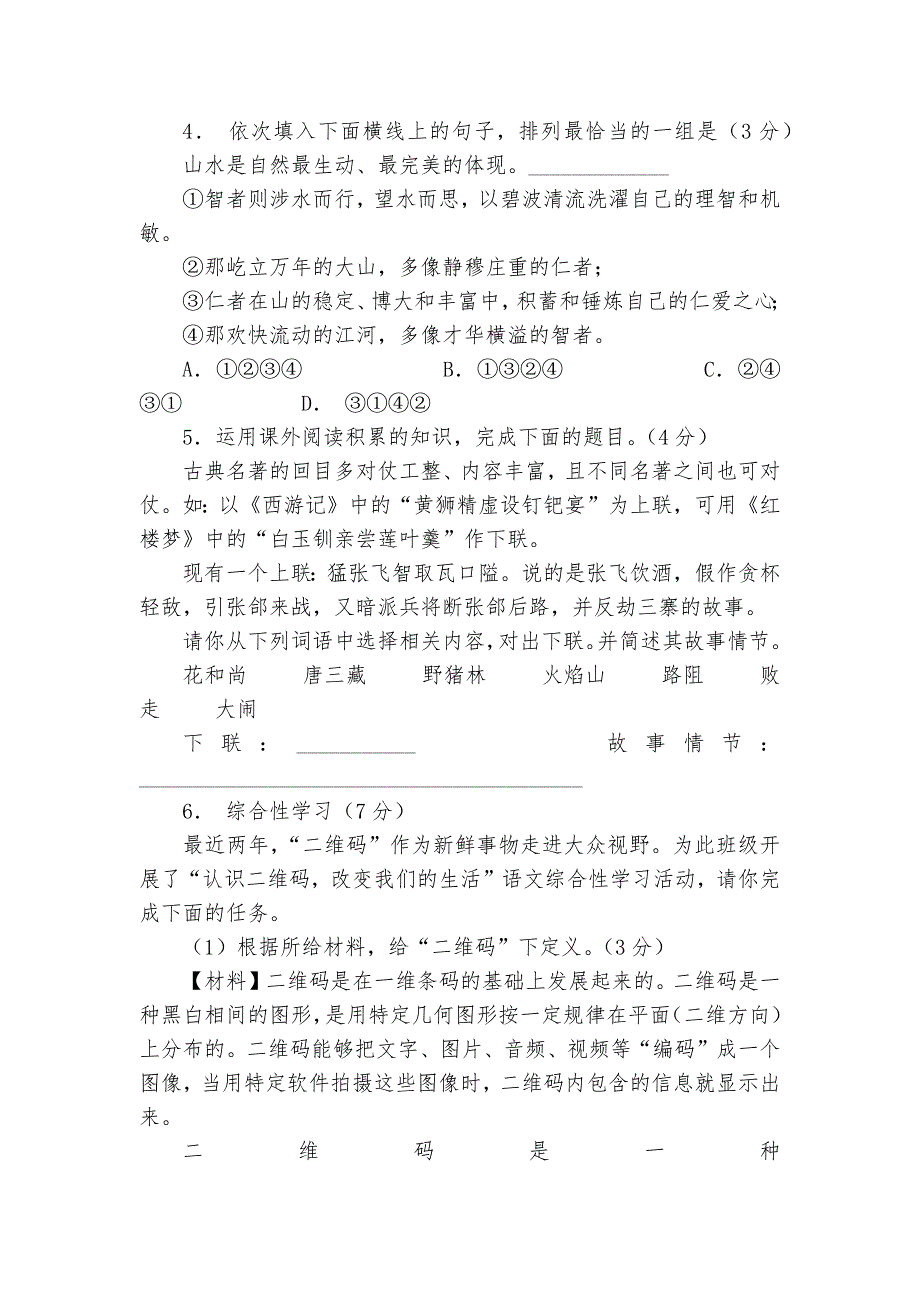 4． 依次填入下面横线上的句子，排列最恰当的一组是（3 分）
山水是自然最生动、最完美的体现。_____________
①智者则涉水而行，望水而思，以碧波清流洗濯自己的理智和机
敏。
②那屹立万年的大山，多像静穆庄重的仁者；
③仁者在山的稳定、博大和丰富中，积蓄和锤炼自己的仁爱之心；
④那欢快流动的江河，多像才华横溢的智者。
A．①②③④ B．①③②④ C．②④
③① D． ③①④②
5．运用课外阅读积累的知识，完成下面的题目。（4 分）
古典名著的回目多对仗工整、内容丰富，且不同名著之间也可对
仗。如：以《西游记》中的“黄狮精虚设钉钯宴”为上联，可用《红
楼梦》中的“白玉钏亲尝莲叶羹”作下联。
现有一个上联：猛张飞智取瓦口隘。说的是张飞饮酒，假作贪杯
轻敌，引张郃来战，又暗派兵将断张郃后路，并反劫三寨的故事。
请你从下列词语中选择相关内容，对出下联。并简述其故事情节。
花和尚 唐三藏 野猪林 火焰山 路阻 败
走 大闹
下联：___________ 故事情节：
_________________________________________
6． 综合性学习（7 分）
最近两年，“二维码”作为新鲜事物走进大众视野。为此班级开
展了“认识二维码，改变我们的生活”语文综合性学习活动，请你完
成下面的任务。
（1）根据所给材料，给“二维码”下定义。（3 分）
【材料】二维码是在一维条码的基础上发展起来的。二维码是一
种黑白相间的图形，是用特定几何图形按一定规律在平面（二维方向）
上分布的。二维码能够把文字、图片、音频、视频等“编码”成一个
图像，当用特定软件拍摄这些图像时，二维码内包含的信息就显示出
来。
二维码是一种